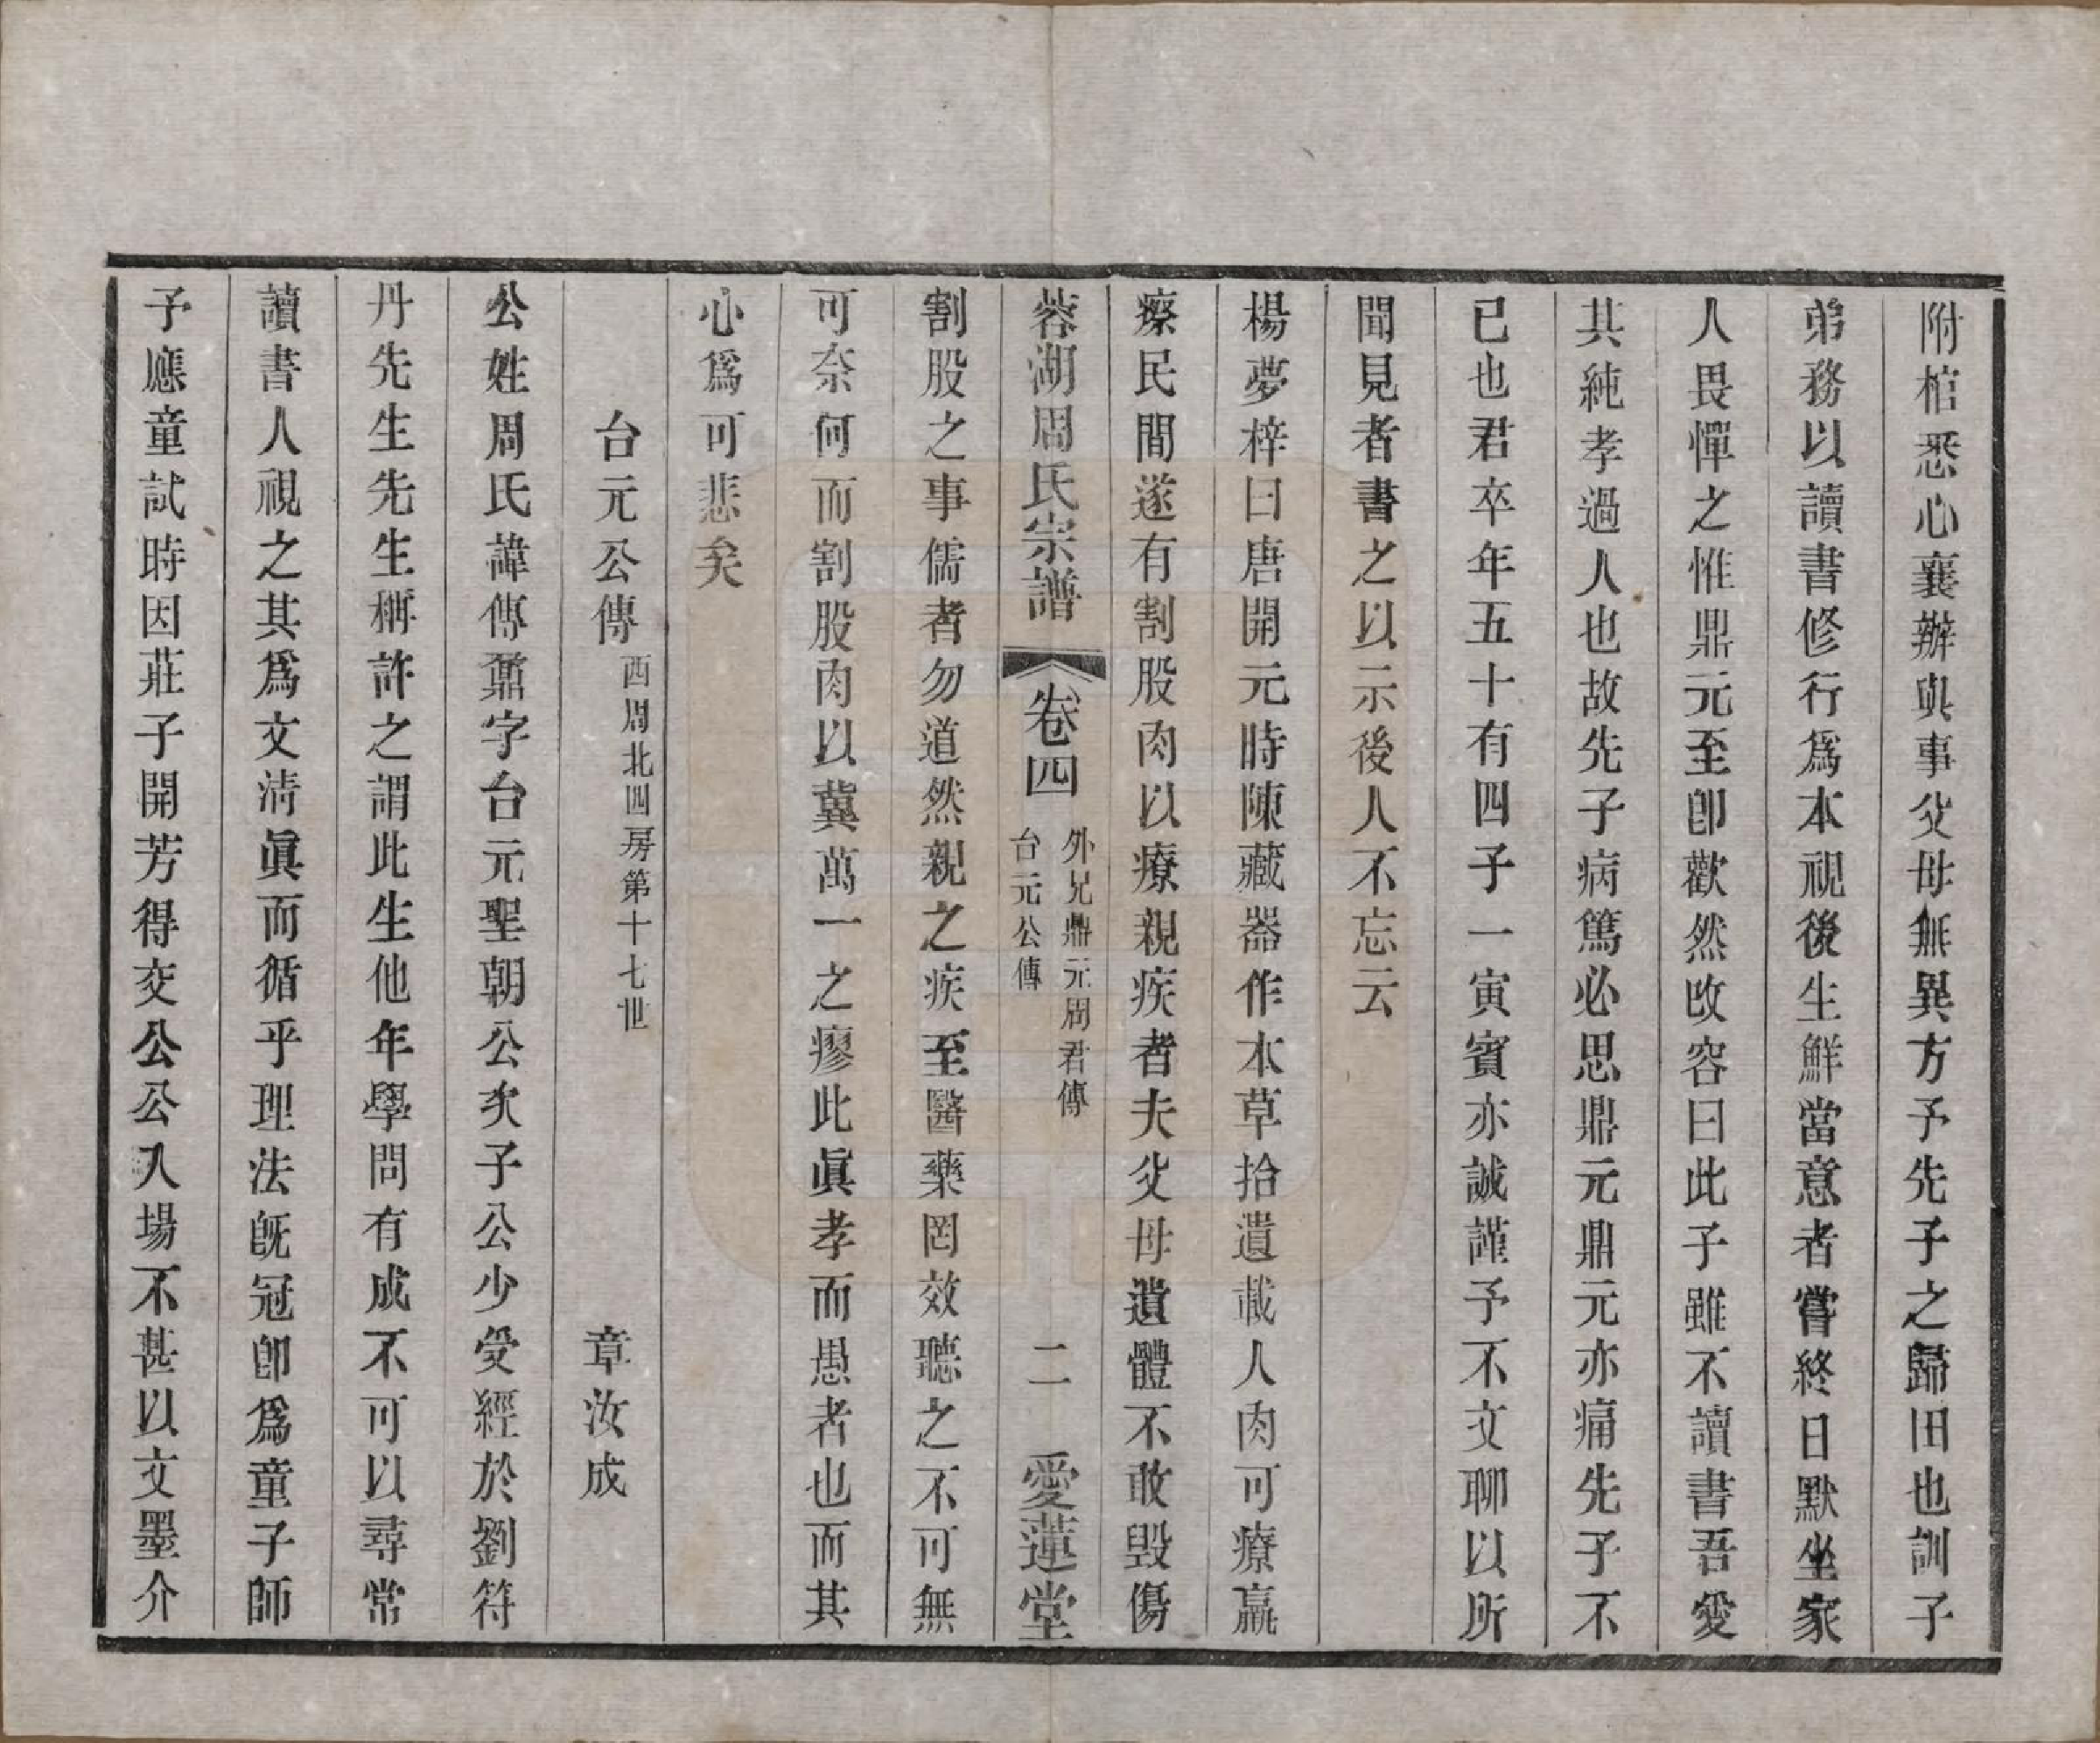 附棺悉心襄辦與事父母無異方予先子之歸田也訓子
弟務以讀書修行爲本視後生鮮當意者嘗終日默坐家
人畏憚之惟鼎元至卽歡然改容曰此子雖不讀書吾愛
其純孝過人也故先子病篤必思鼎元鼎元亦痛先子不
已也君卒年五十有四子一寅賓亦誠謹予不文聊以所
聞見者書之以示後人不忘云
楊夢梓曰唐開元時陳藏器作本草拾遺載人肉可療羸
瘵民間遂有割股肉以療親疾者夫父母遺體不敢毀傷
蓉湖周氏宗譜
卷四
外兄鼎元周君傳
台元公傳
二
愛蓮堂
割股之事儒者勿道然親之疾至醫藥罔效聽之不可無
可奈何而割股肉以冀萬一之瘳此眞孝而愚者也而其
心爲可悲矣
台元公傳
西周北四房第十七世
章汝成
公姓周氏諱傳鼐字台元聖朝公次子公少受經於劉符
丹先生先生稱許之謂此生他年學問有成不可以尋常
讀書人視之其爲文淸眞而循乎理法旣冠卽爲童子師
予應童試時因莊子開芳得交公公入場不甚以文墨介